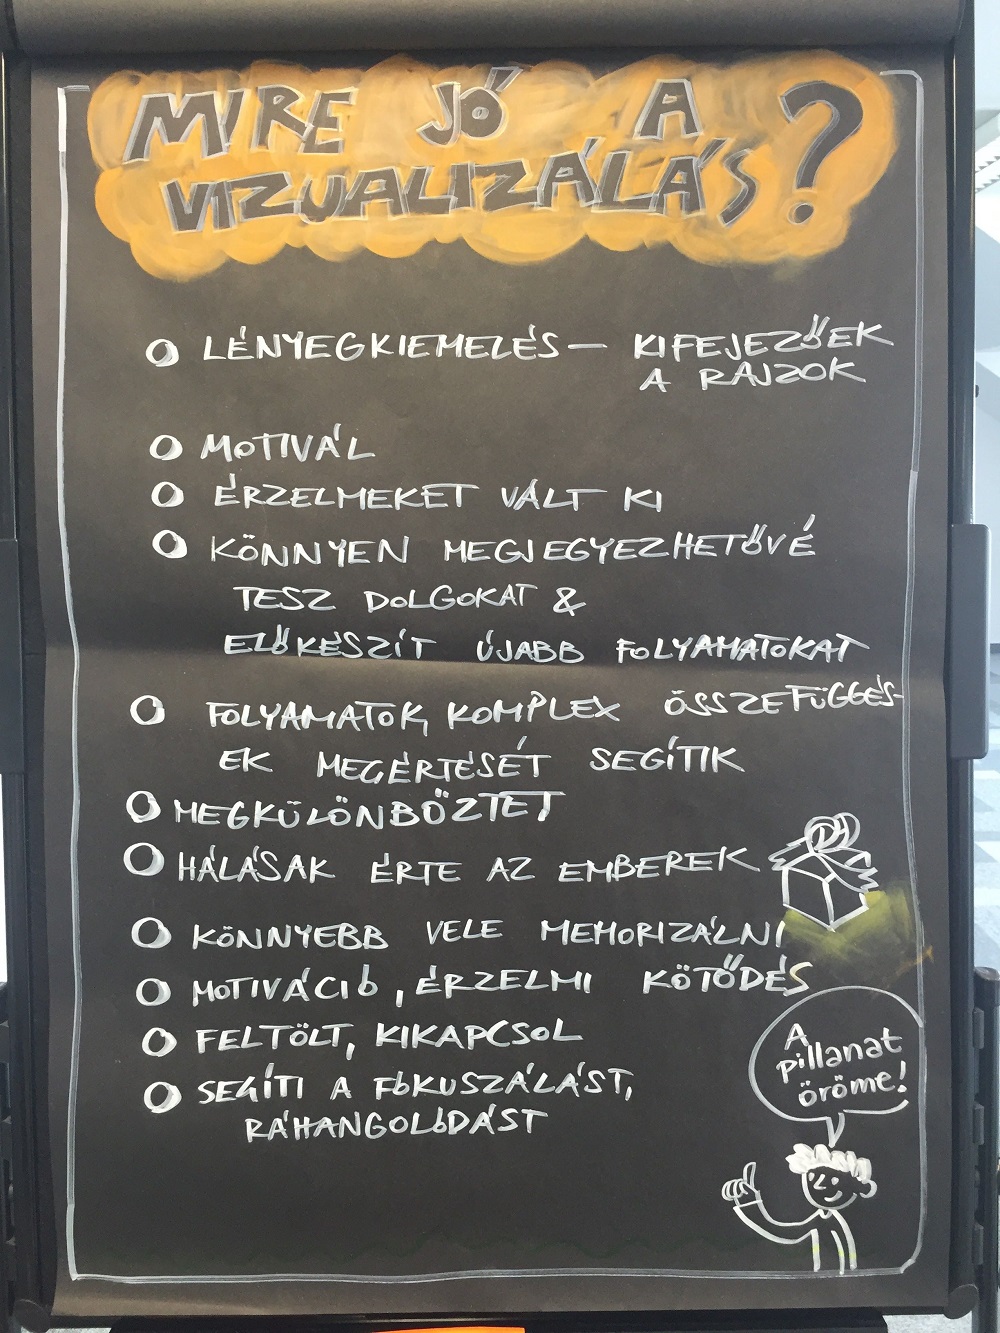 MIRE JÓ A
VIZUALIZÁLÁS?
LÉNYEGKIEMELÉS – KIFEJEZŐEK
A RAJZOK
MOTIVÁL
ÉRZELMEKET VÁLT KI
KÖNNYEN MEGJEGYEZHETŐVÉ
TESZ DOLGOKAT &
ELŐKÉSZÍT ÚJABB FOLYAMATOKAT
FOLYAMATOK, KOMPLEX ÖSSZEFÜGGÉS-
EK MEGÉRTÉSÉT SEGÍTIK
MEGKÜLÖNBÖZTET
HÁLÁSAK ÉRTE AZ EMBEREK
KÖNNYEBB VELE MEMORIZÁLNI
MOTIVÁCIÓ, ÉRZELMI KÖTŐDÉS
FELTÖLT, KIKAPCSOL
SEGÍTI A FÓKUSZÁLÁST,
RÁHANGOLÓDÁST
A
pillanat
öröme!